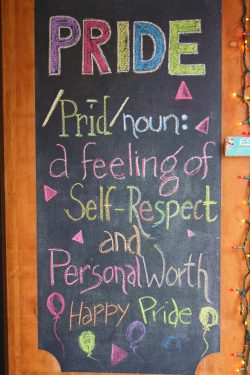 PRIDE
/Prīd/noun:
a feeling of
Self-Respect
and
Personal Worth
Happy Pride